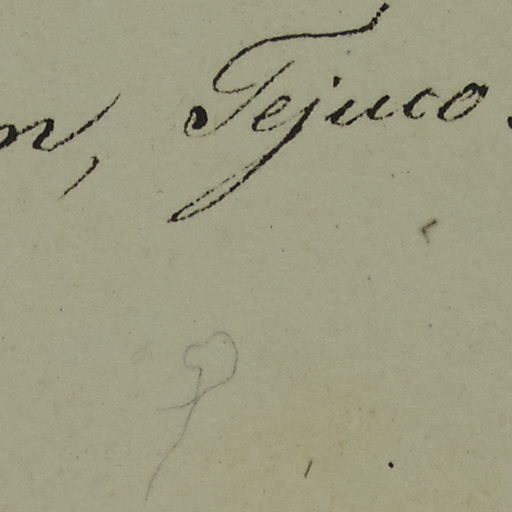 n, Tejuco.